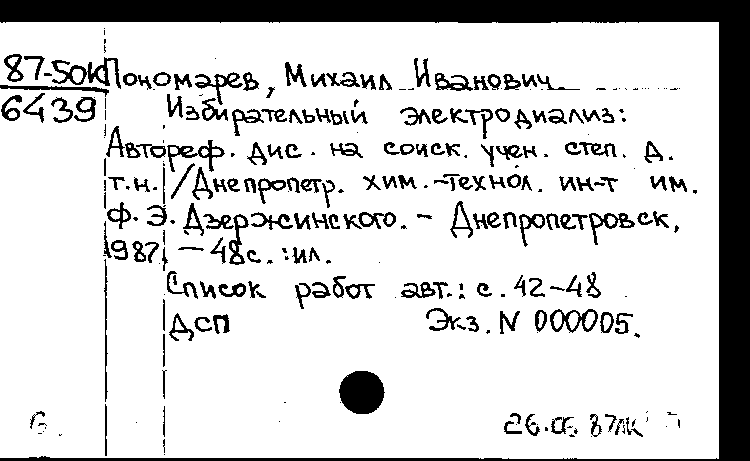 87-50К Пономарев, Михаил Иванович
6439 Избирательный электродиализ:
Автореф. дис. на соиск. учен. степ. д.
т.н. /Днепропетр. хим.-технол. ин-т им.
Ф.Э. Дзержинского. - Днепропетровск,
1987. - 48с. :ил.
Список работ авт.: с. 42-48
ДСП Экз. N 000005.
26.06 87